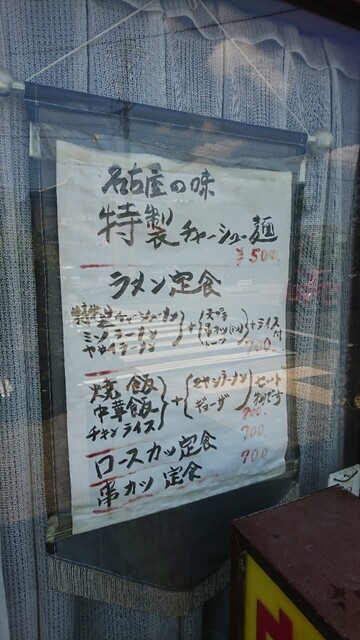 名古屋の味
特製チャーシュー麺
¥500.
ラメン定食
特製チャーシューメン
ミソラーメン
ヤサイラーメン
+
+ライス付
700
焼飯
中華飯
チキンライス
+
ギョーザ
セット
700.
ロースカツ定食 700.
串カツ 定食 900